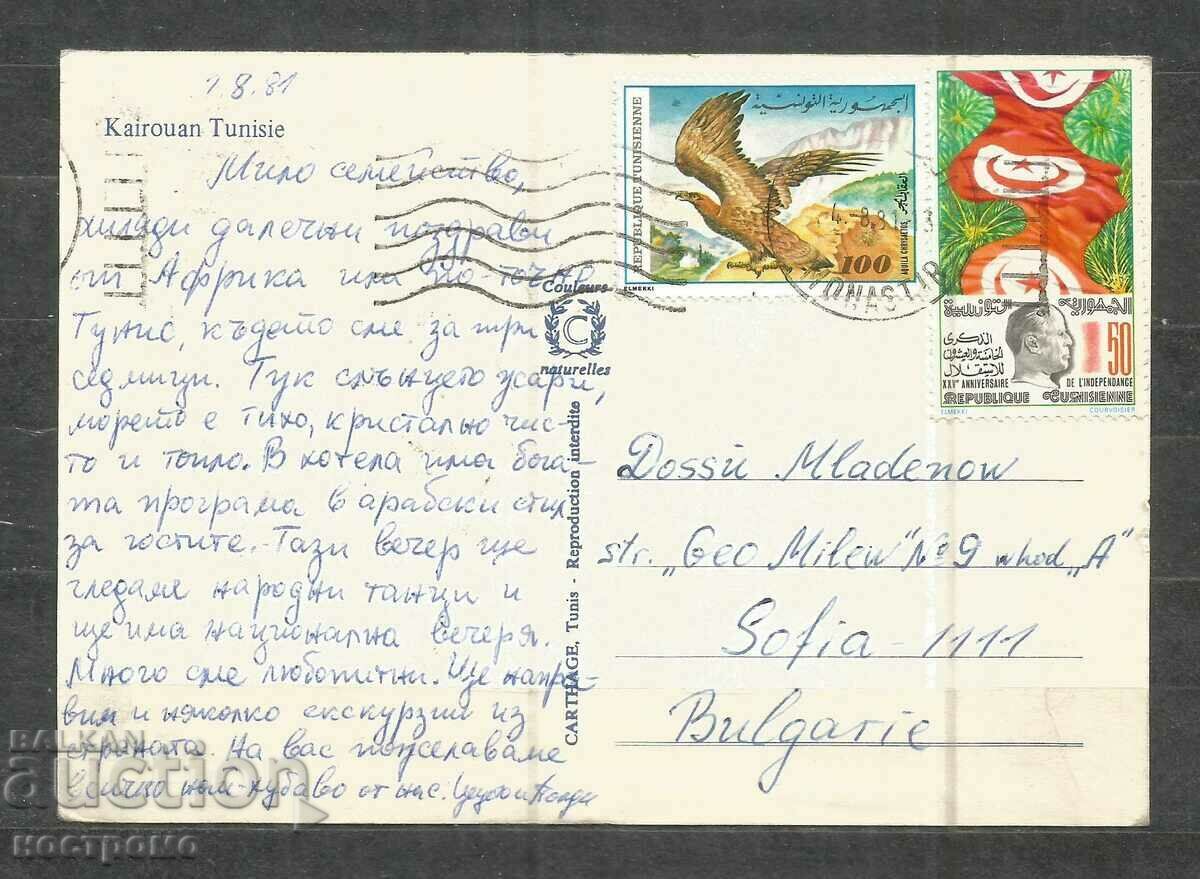 1.8.81
Kairouan Tunisie
Мило семейство,
хиляди далечни поздрави
от Африка или по-точно
Тунис, където сме за три
седмици. Тук слънцето жари,
морето е тихо, кристално чис-
то и топло. В хотела има бога-
та програма в арабски стил
за гостите. Тази вечер ще
гледаме народни танци и
ще има национална вечеря.
Много сме любопитни. Ще напра-
вим и няколко екскурзии из
страната. На вас пожелаваме
всичко най-хубаво от нас.
Couleurs
C
naturelles
CARTHAGE, Tunis - Reproduction interdite
REPUBLIQUE TUNISIENNE
الجمهورية التونسية
AQUILA CHRYSAETOS
100
ELMEKKI
4.-8.8
MONASTIR
الجمهورية التونسية
الذكرى
الخامسة والعشرون
للاستقلال
50
XXVe ANNIVERSAIRE DE L'INDEPENDANCE
REPUBLIQUE TUNISIENNE
ELMEKKI COURVOISIER
Dossü Mladenow
str. „Geo Milew" No 9 whod „A"
Sofia-1111
Bulgarie
BALKAN
auction
костромо